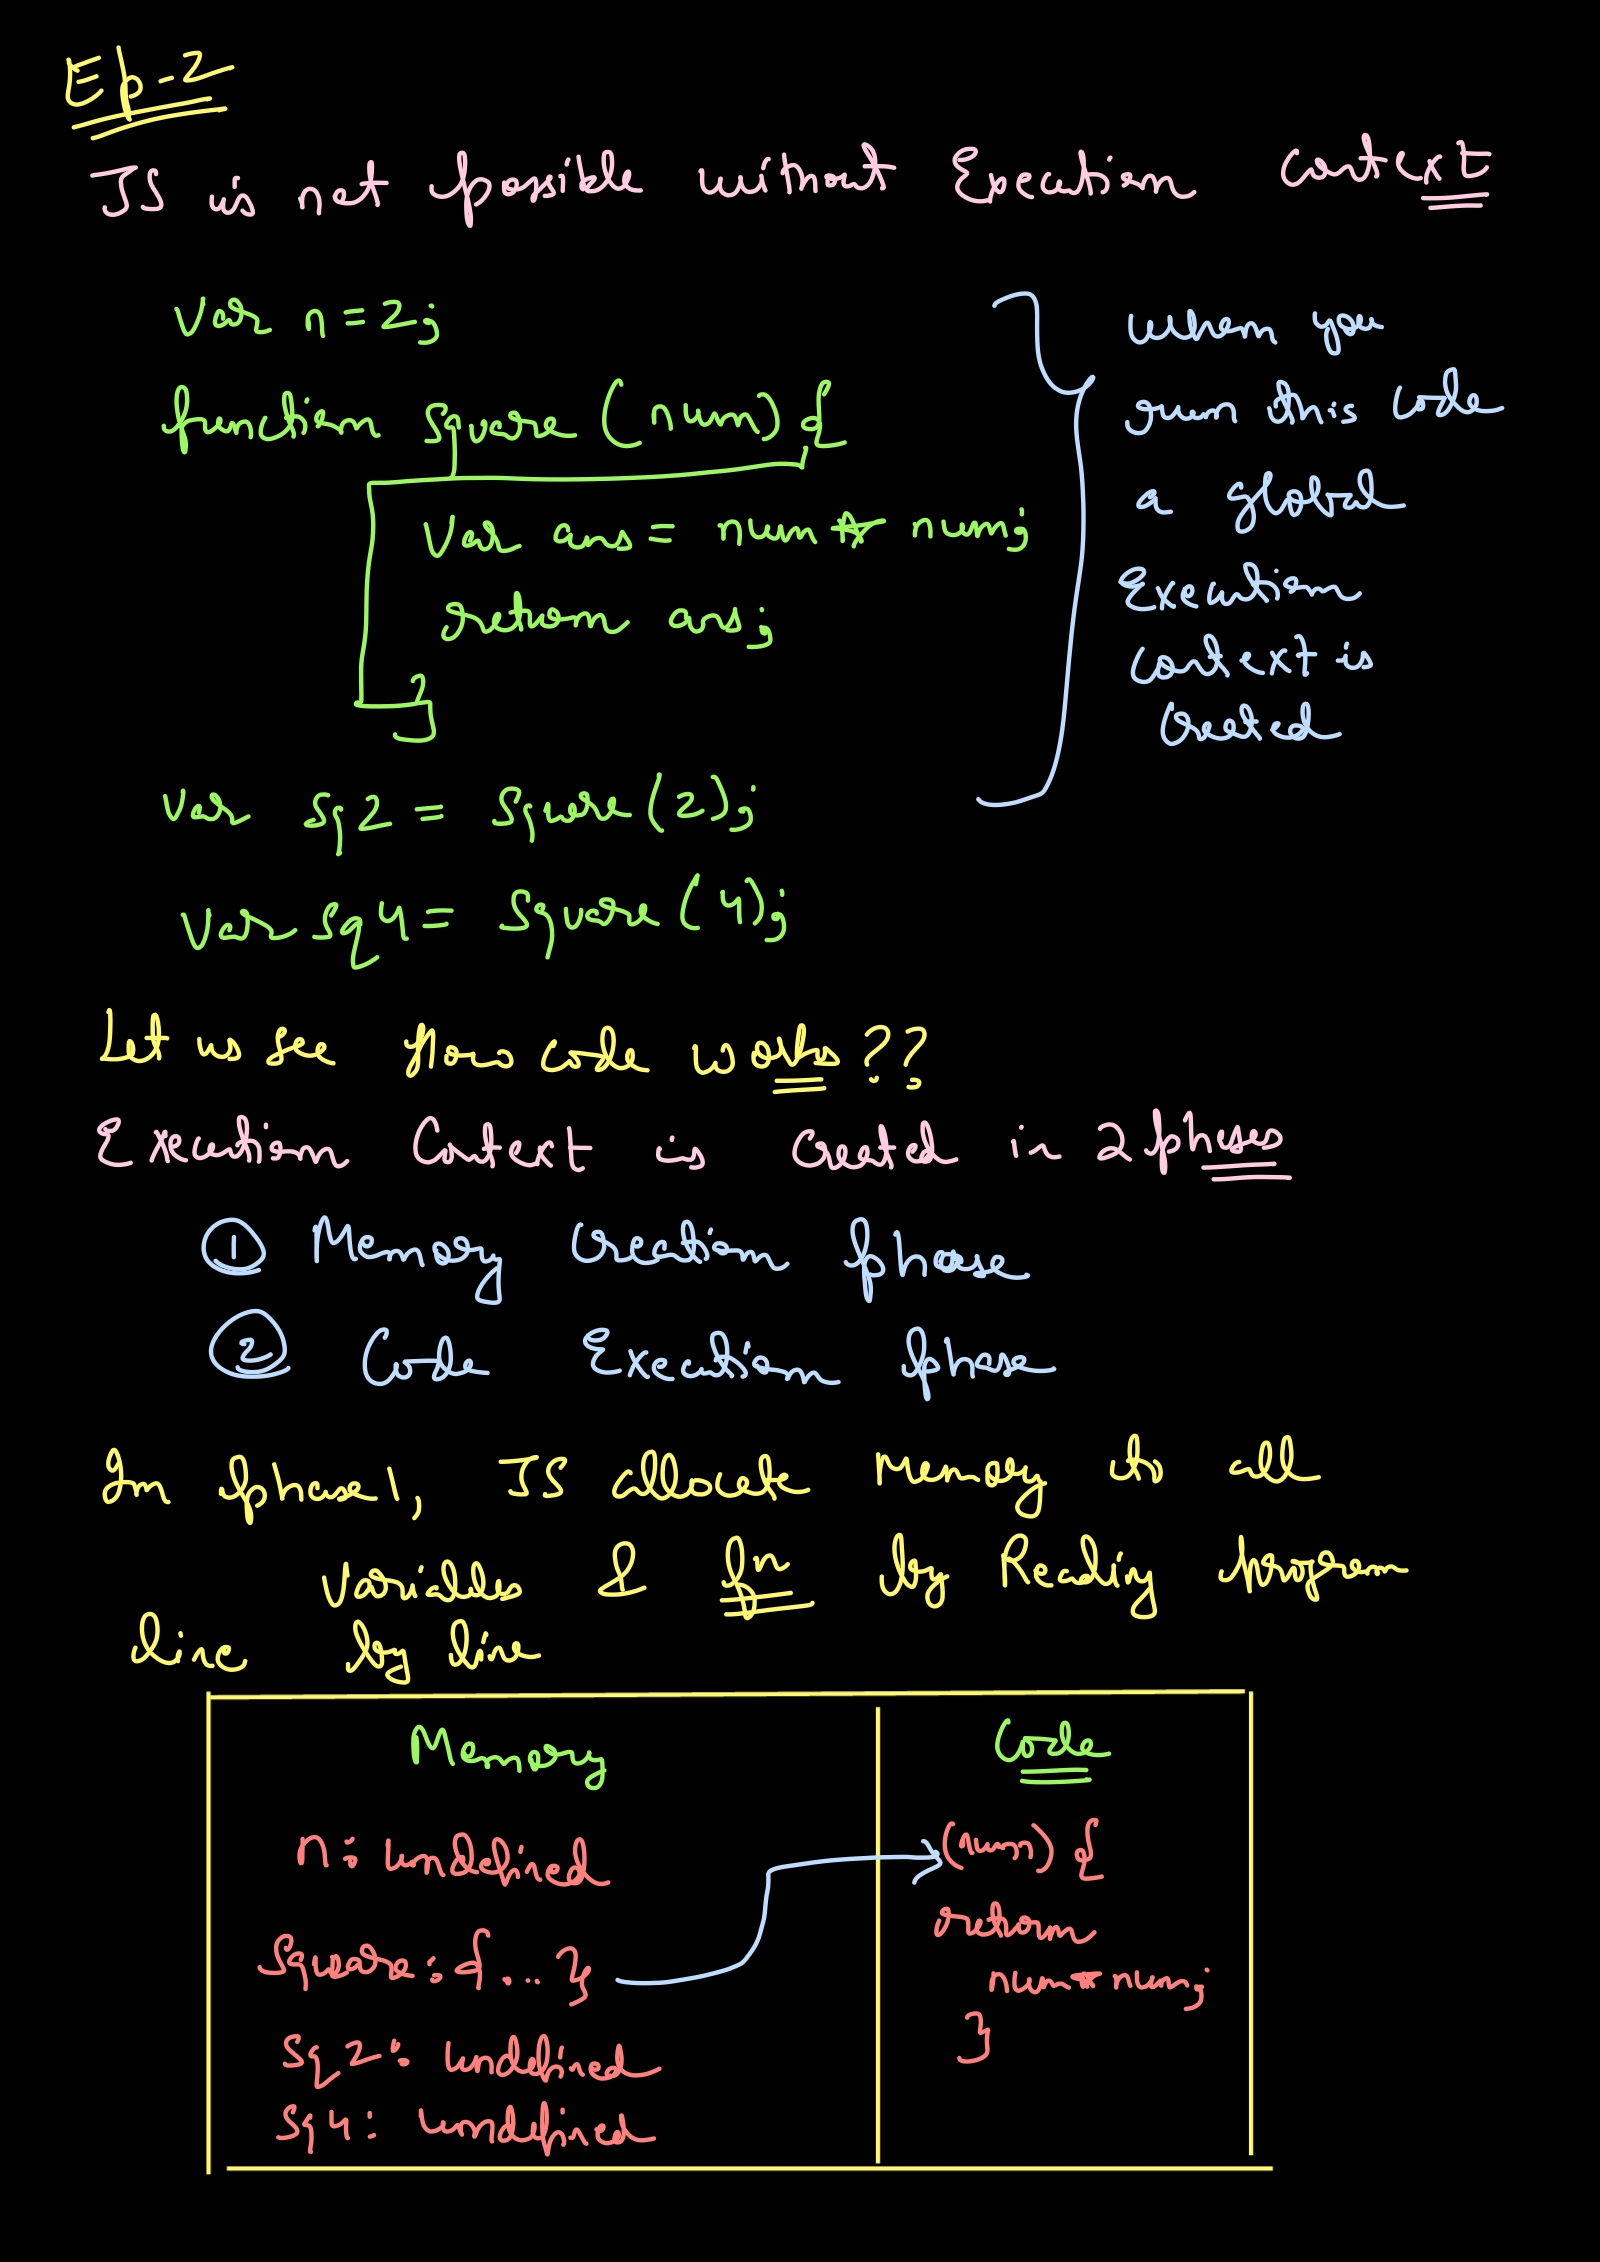 Ep-2
JS is not possible without Execution Context
Var n = 2;
function square (num) {
Var ans = num * num;
return ans;
}
Var sq2 = Square (2);
Var sq4 = Square (4);
When you
run this code
a global
Execution
Context is
Created
Let us see How code works ??
Execution Context is Created in 2 phases
① Memory Creation phase
② Code Execution phase
In phase 1, JS allocate Memory to all
Variables & fn by Reading program
line by line
Memory
n: undefined
Square: {...}
Sq2: undefined
Sq4: undefined
Code
(num) {
return
num * num;
}